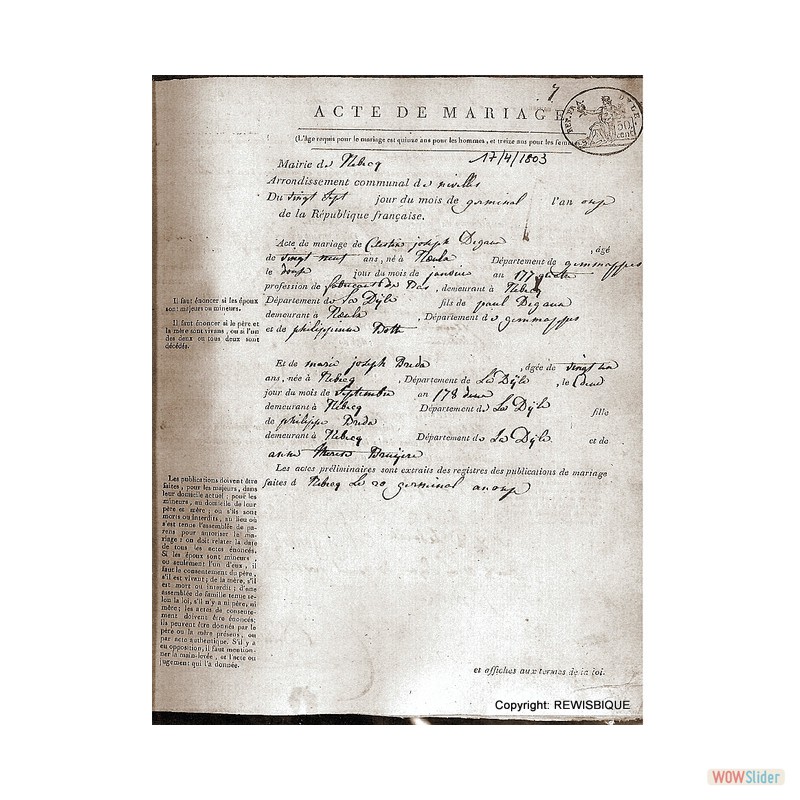 7
ACTE DE MARIAGE
(L'âge requis pour le mariage est quinze ans pour les hommes, et treize ans pour les femmes
Mairie de Rebecq 17/4/1803
Arrondissement communal de nivelles
Du vingt sept jour du mois de germinal l'an onze
de la République française.
Acte de mariage de Celestin joseph Degaux , âgé
de vingt neuf ans, né à Département de gemmappes
le douze jour du mois de janvier an 177
profession de fabricant de Bas , demeurant à Rebecq
Département de La Dÿle fils de paul Degaux
demeurant à Département de gemmappes
et de philippinne
Et de marie joseph Breda , âgée de vingt un
ans, née à Rebecq , Département de La Dÿle , le deux
jour du mois de Septembre an 178 deux
demeurant à Rebecq Département de La Dÿle fille
de philippe Breda
demeurant à Rebecq Département de La Dÿle et de
anne therese Bruyere
Les actes préliminaires sont extraits des registres des publications de mariage
faites à Rebecq Le 20 germinal an onze
Il faut énoncer si les époux
sont majeurs ou mineurs.
Il faut énoncer si le père et
la mère sont vivans, ou si l'un
des deux ou tous deux sont
décédés.
Les publications doivent être
faites, pour les majeurs, dans
leur domicile actuel; pour les
mineurs, au domicile de leur
père et mère; ou s'ils sont
morts ou interdits, au lieu où
s'est tenue l'assemblée de pa-
rens pour autoriser le ma-
riage: on doit relater la date
de tous les actes énoncés.
Si les époux sont mineurs,
ou seulement l'un d'eux, il
faut le consentement du père,
s'il est vivant; de la mère, s'il
est mort ou interdit; d'une
assemblée de famille tenue se-
lon la loi, s'il n'y a ni père, ni
mère; les actes de consente-
ment doivent être énoncés;
ils peuvent être donnés par le
père ou la mère présens, ou
par acte authentique. S'il y a
eu opposition, il faut mention-
ner la main-levée, et l'acte ou
jugement qui l'a donnée.
et affiches aux termes de la loi.
Copyright: REWISBIQUE
WOWSlider